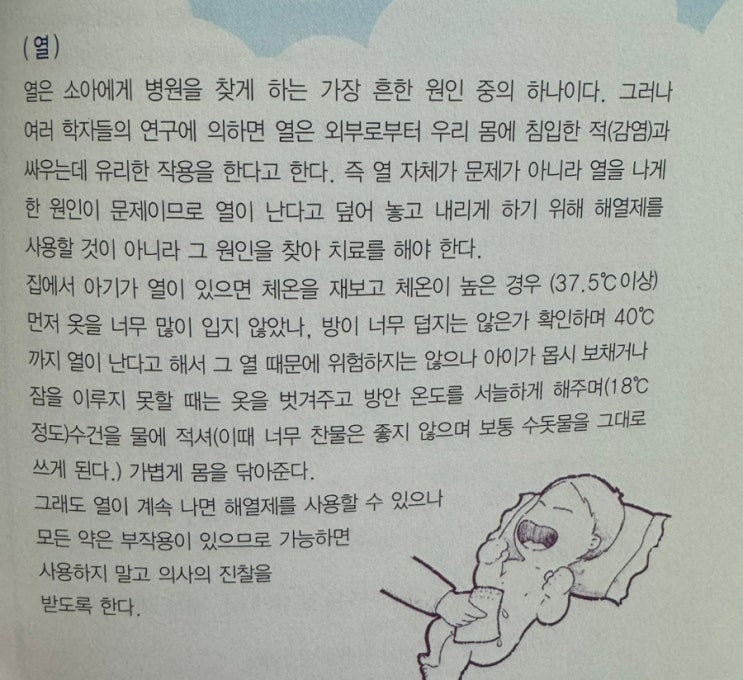 (열)
열은 소아에게 병원을 찾게 하는 가장 흔한 원인 중의 하나이다. 그러나
여러 학자들의 연구에 의하면 열은 외부로부터 우리 몸에 침입한 적(감염)과
싸우는데 유리한 작용을 한다고 한다. 즉 열 자체가 문제가 아니라 열을 나게
한 원인이 문제이므로 열이 난다고 덮어 놓고 내리게 하기 위해 해열제를
사용할 것이 아니라 그 원인을 찾아 치료를 해야 한다.
집에서 아기가 열이 있으면 체온을 재보고 체온이 높은 경우 (37.5℃이상)
먼저 옷을 너무 많이 입지 않았나, 방이 너무 덥지는 않은가 확인하며 40℃
까지 열이 난다고 해서 그 열 때문에 위험하지는 않으나 아이가 몹시 보채거나
잠을 이루지 못할 때는 옷을 벗겨주고 방안 온도를 서늘하게 해주며(18℃
정도)수건을 물에 적셔(이때 너무 찬물은 좋지 않으며 보통 수돗물을 그대로
쓰게 된다.) 가볍게 몸을 닦아준다.
그래도 열이 계속 나면 해열제를 사용할 수 있으나
모든 약은 부작용이 있으므로 가능하면
사용하지 말고 의사의 진찰을
받도록 한다.